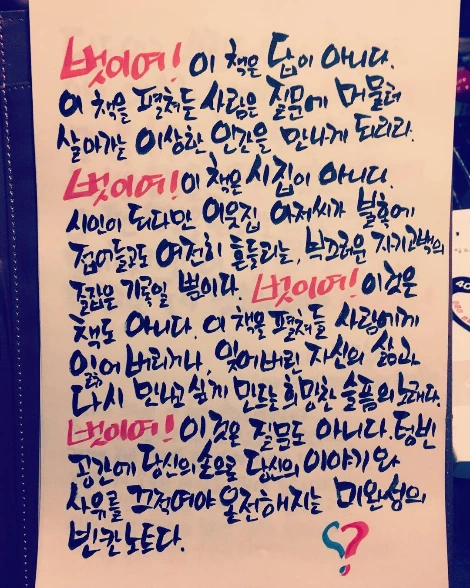 벗이여! 이 책은 답이 아니다.
이 책을 펼쳐든 사람은 질문에 머물며
살아가는 이상한 인간을 만나게 되리라.
벗이여! 이 책은 시집이 아니다.
시인이 되다만 이웃집 아저씨가 불혹에
접어들고도 여전히 흔들리는, 부끄러운 자기고백의
졸잡은 기록일 뿐이다. 벗이여! 이것은
책도 아니다. 이 책을 펼쳐든 사람에게
잊어버리거나, 잃어버린 자신의 삶과
다시 만나고 싶게 만드는 희망찬 슬픔의 노래다.
벗이여! 이것은 질문도 아니다. 텅빈
공간에 당신의 손으로 당신의 이야기와
사유를 끄적여야 온전해지는 미완성의
빈칸노트다.
?